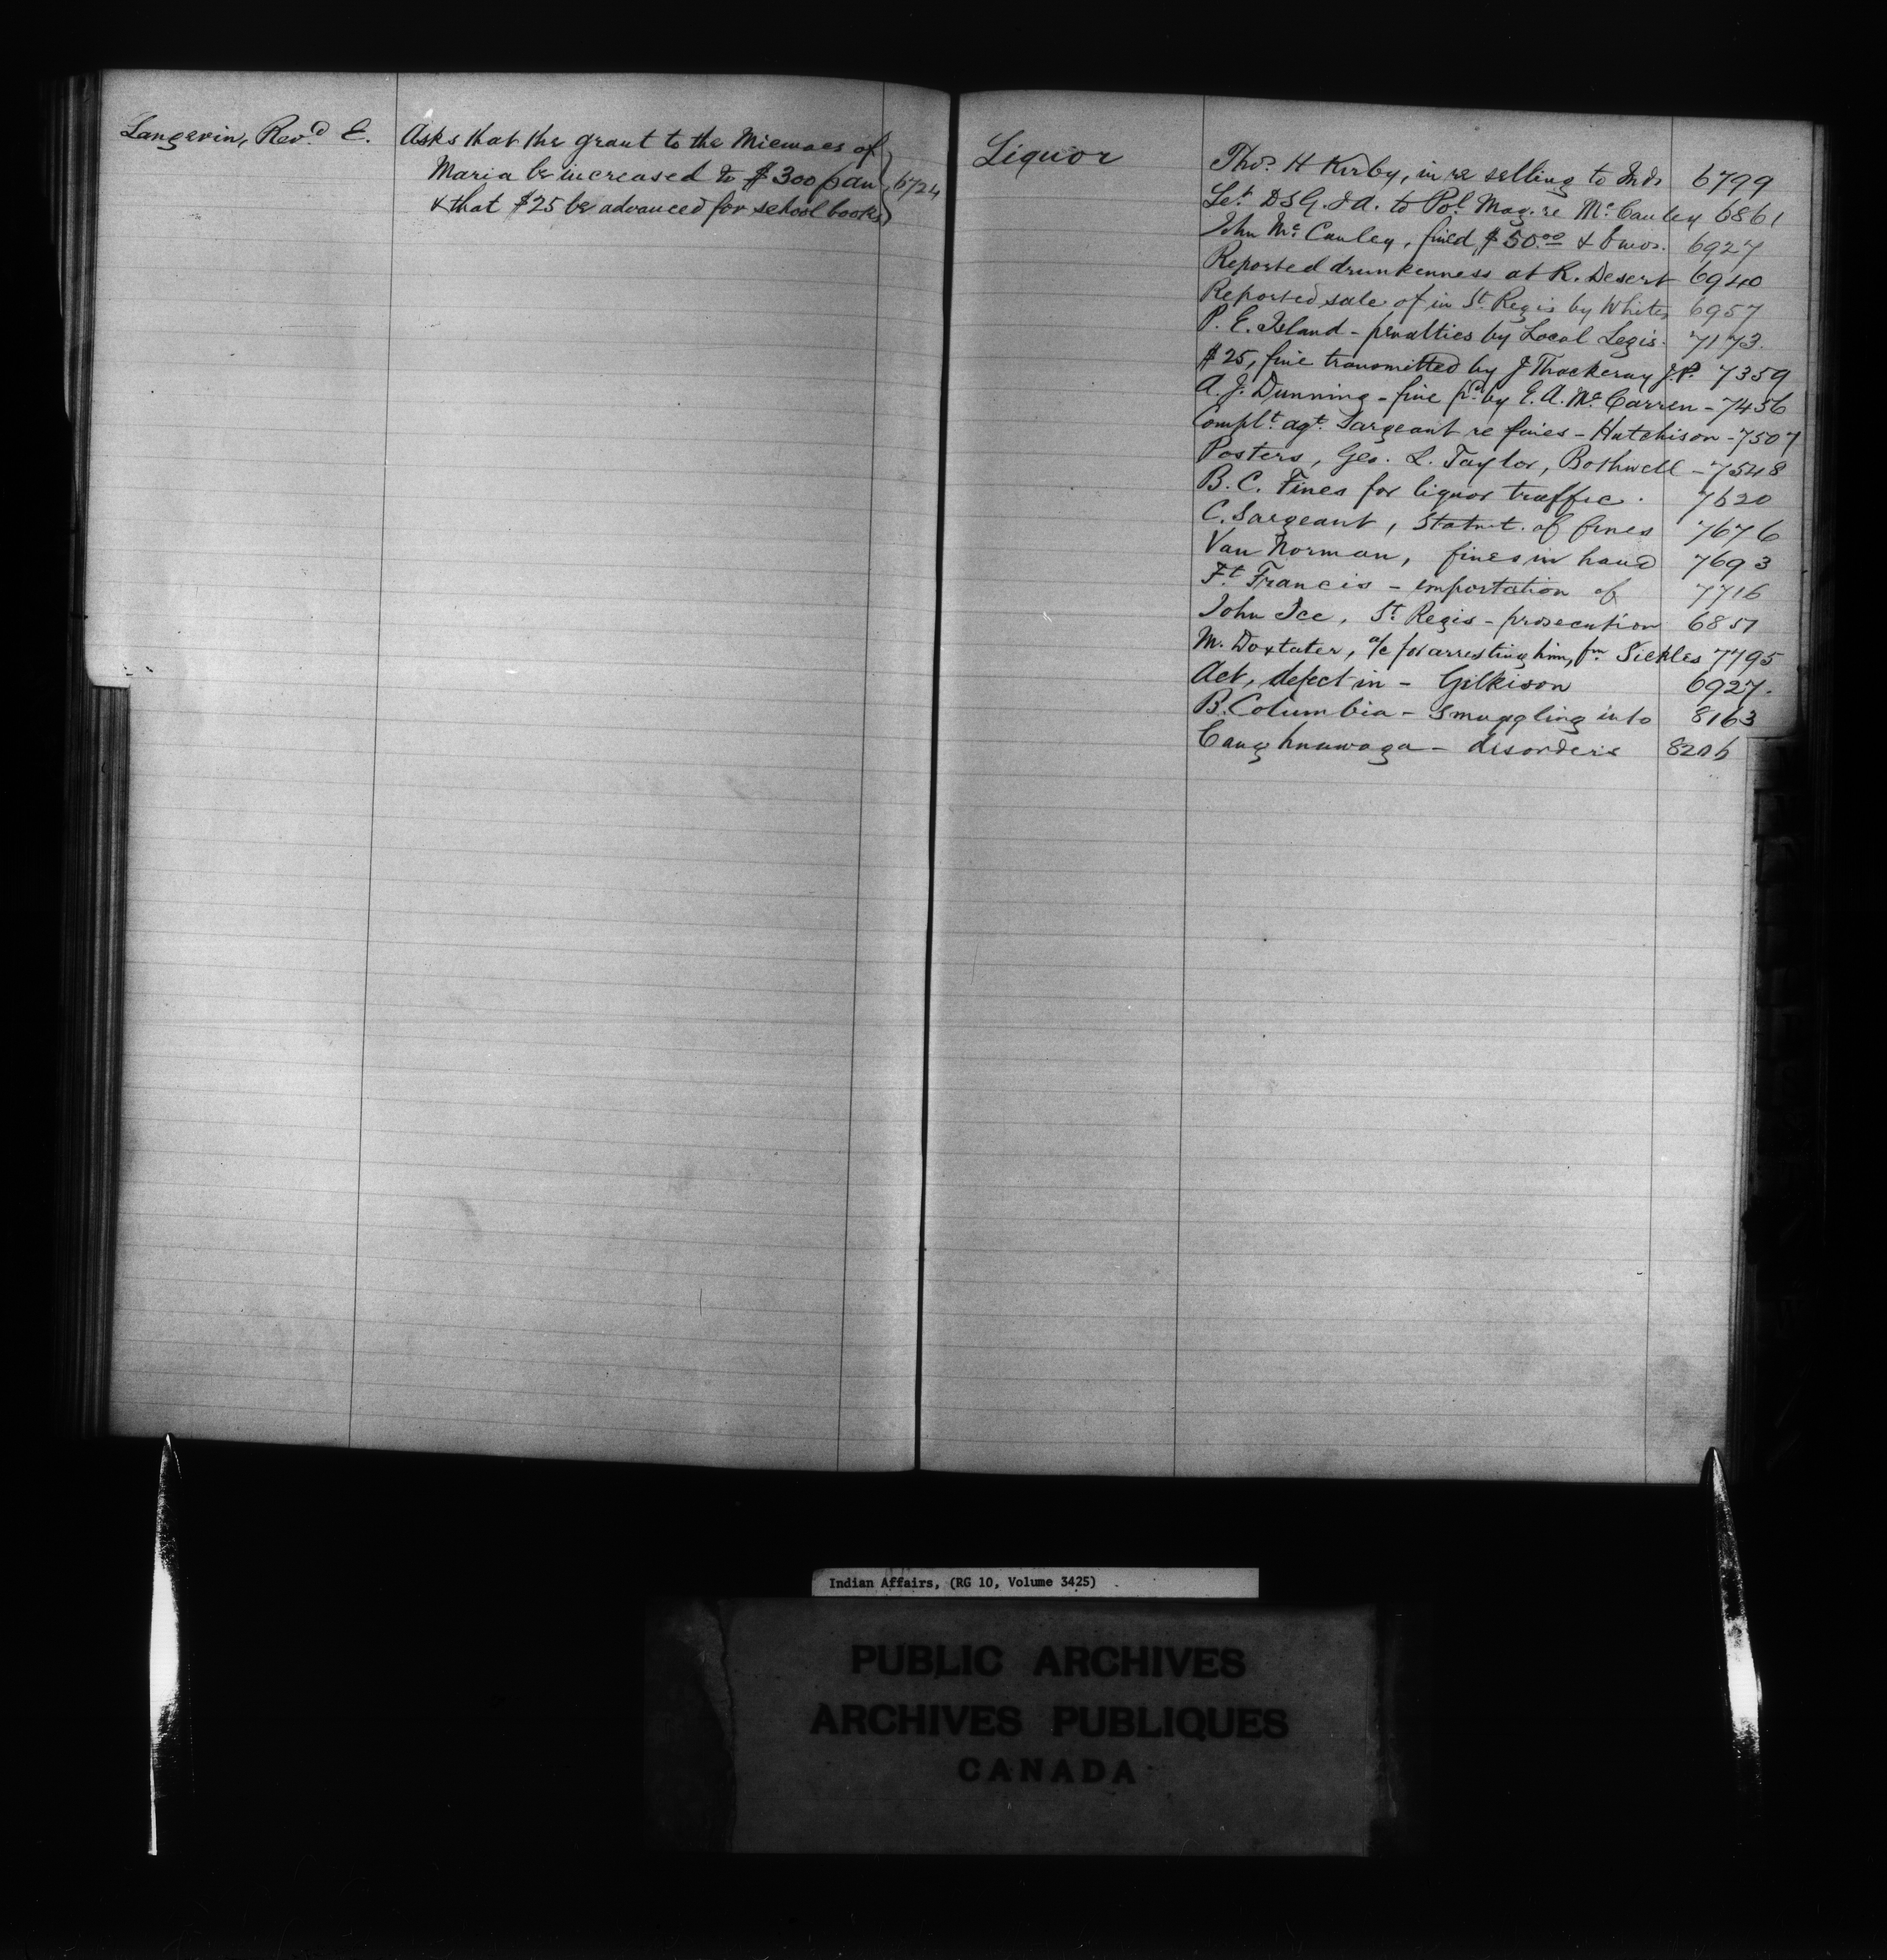 Langevin, Rev.d E.
Asks that the grant to the Micmacs of
Maria be increased to $300 p an
& that $25 be advanced for school books
6724
Liquor
Thos. H Kirby, in re selling to Inds 6799
Let. D.S.G. I A. to Pol. Mag. re McCauley 6861
John McCauley, fined $50.00 & 6 mos. 6927
Reported drunkenness at R. Desert 6940
Reported sale of in St Regis by Whites 6957
P. E. Island - penalties by Local Legis. 7173.
$25, fine transmitted by J Thackeray J.P. 7359
A. J. Dunning - fine pd. by E. A. McCarren - 7456
Complt. agt. Sargeant re fines - Hutchison - 7507
Posters, Geo. L. Taylor, Bothwell - 7548
B. C. Fines for liquor traffic. 7620
C. Sargeant, Statmt. of fines 7676
Van Norman, fines in hand 7693
Ft Francis - importation of 7716
John Ice, St Regis - prosecution 6851
M. Doxtater, a/c for arresting him, fm. Sickles 7795
Act, defect in - Gilkison 6927.
B. Columbia - Smuggling into 8163
Caughnawaga - disorders 8206
Indian Affairs, (RG 10, Volume 3425)
PUBLIC ARCHIVES
ARCHIVES PUBLIQUES
CANADA